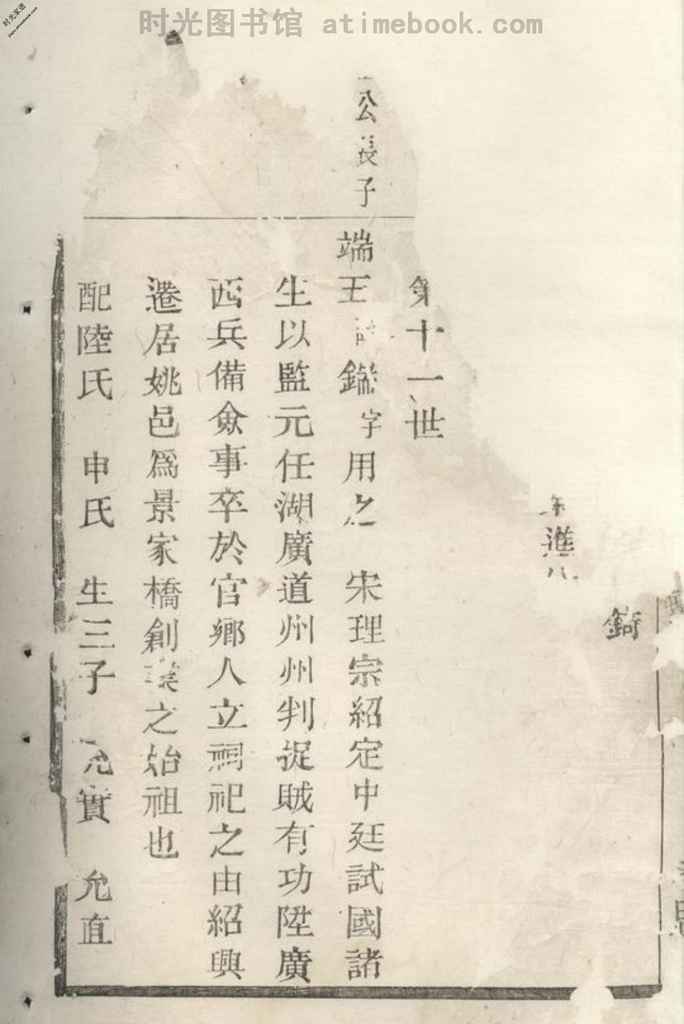 时光图书馆 atimebook.com
时光家谱
www.atimebook.com
錡
進八
第十一世
公長子
端王 鑑字用之 宋理宗紹定中廷試國諸
生以監元任湖廣道州州判捉賊有功陞廣
西兵備僉事卒於官鄉人立祠祀之由紹興
遷居姚邑爲景家橋創業之始祖也
配陸氏 申氏 生三子 允實 允直